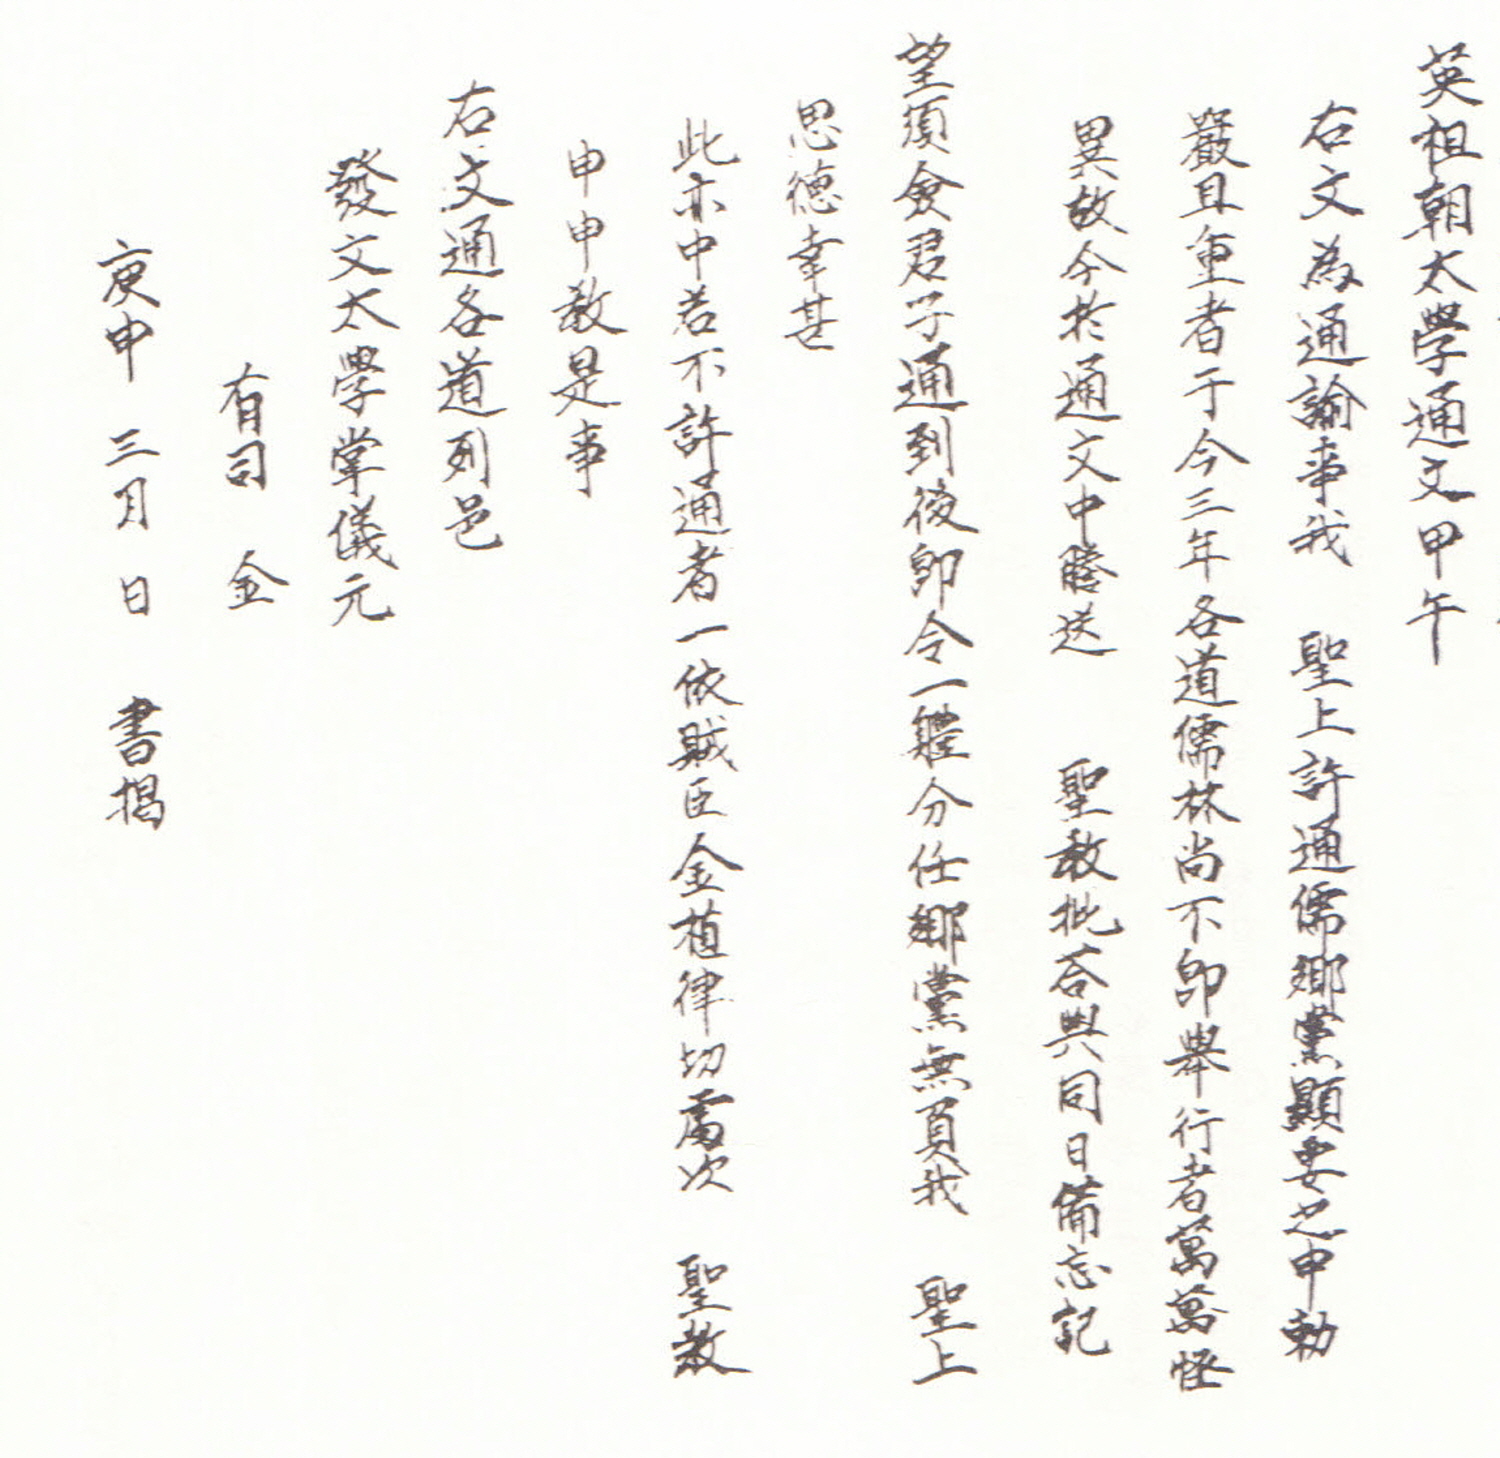 英祖朝太學通文甲午
右文為通諭事我 聖上許通儒鄕黨顯要之中勅
嚴且重者于今三年各道儒林尚不卽擧行者萬萬怪
異故今於通文中謄送 聖敎批答與同日備忘記
望須僉君子通到後卽令一軆分任鄕黨無負我 聖上
思德幸甚
此亦中若不許通者一依賊臣金植律切處次 聖敎
申申敎是事
右文通各道列邑
發文太學掌儀元
有司 金
庚申 三月 日 書揭